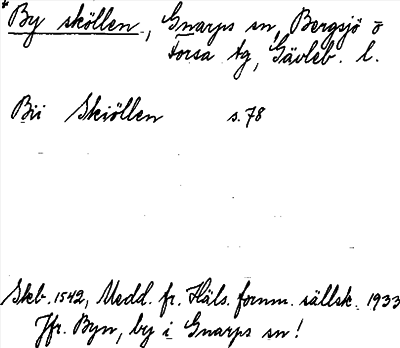 *By sköllen, Gnarps sn, Bergsjö o
Forsa tg, Gävleb. l.
Bii Skiöllen s. 78
Skb. 1542, Medd. fr. Häls. fornm. sällsk. 1933
Jfr. Byn, by i Gnarps sn!